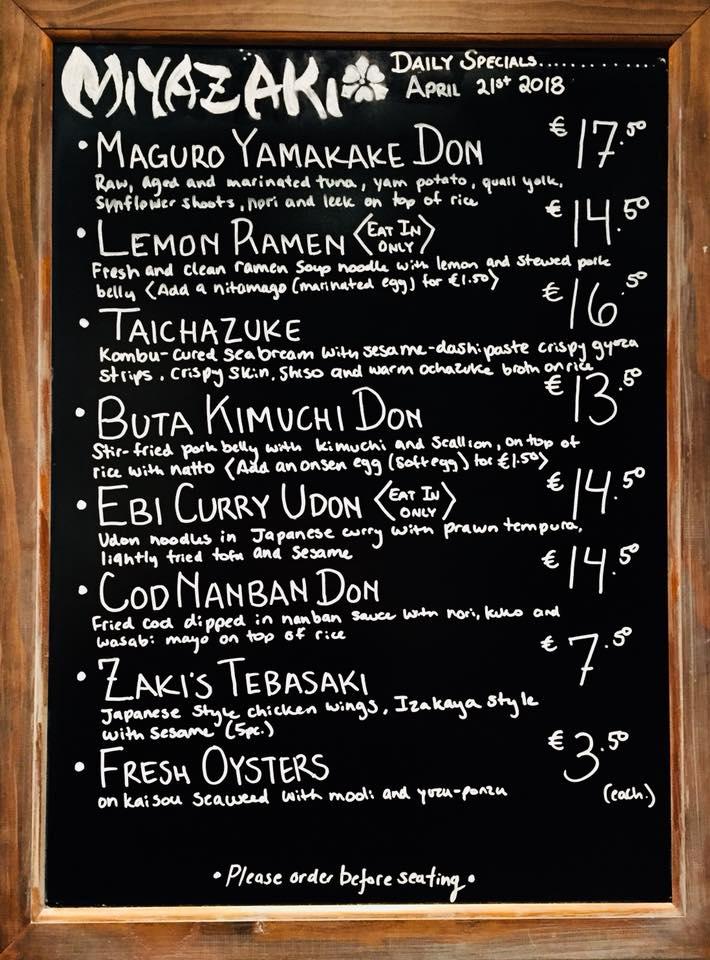 MIYAZAKI DAILY SPECIALS............
APRIL 21st 2018
• MAGURO YAMAKAKE DON €17.50
Raw, aged and marinated tuna, yam potato, quail yolk,
Sunflower shoots, nori and leek on top of rice
• LEMON RAMEN <EAT IN ONLY> €14.50
Fresh and clean ramen soup noodle with lemon and stewed pork
belly <Add a nitamago (marinated egg) for €1.50>
• TAICHAZUKE €16.50
Kombu-cured seabream with sesame-dashi paste crispy gyoza
strips, crispy skin, shiso and warm ochazuke broth on rice
• BUTA KIMUCHI DON €13.50
Stir-fried pork belly with kimuchi and scallion, on top of
rice with natto <Add an onsen egg (soft egg) for €1.50>
• EBI CURRY UDON <EAT IN ONLY> €14.50
Udon noodles in Japanese curry with prawn tempura,
lightly fried tofu and sesame
• COD NANBAN DON €14.50
Fried cod dipped in nanban sauce with nori, kuko and
wasabi mayo on top of rice
• ZAKI'S TEBASAKI €7.50
Japanese style chicken wings, Izakaya style
with sesame (5pc.)
• FRESH OYSTERS €3.50
on kaisou seaweed with mooli and yuzu-ponzu (each.)
• Please order before seating •